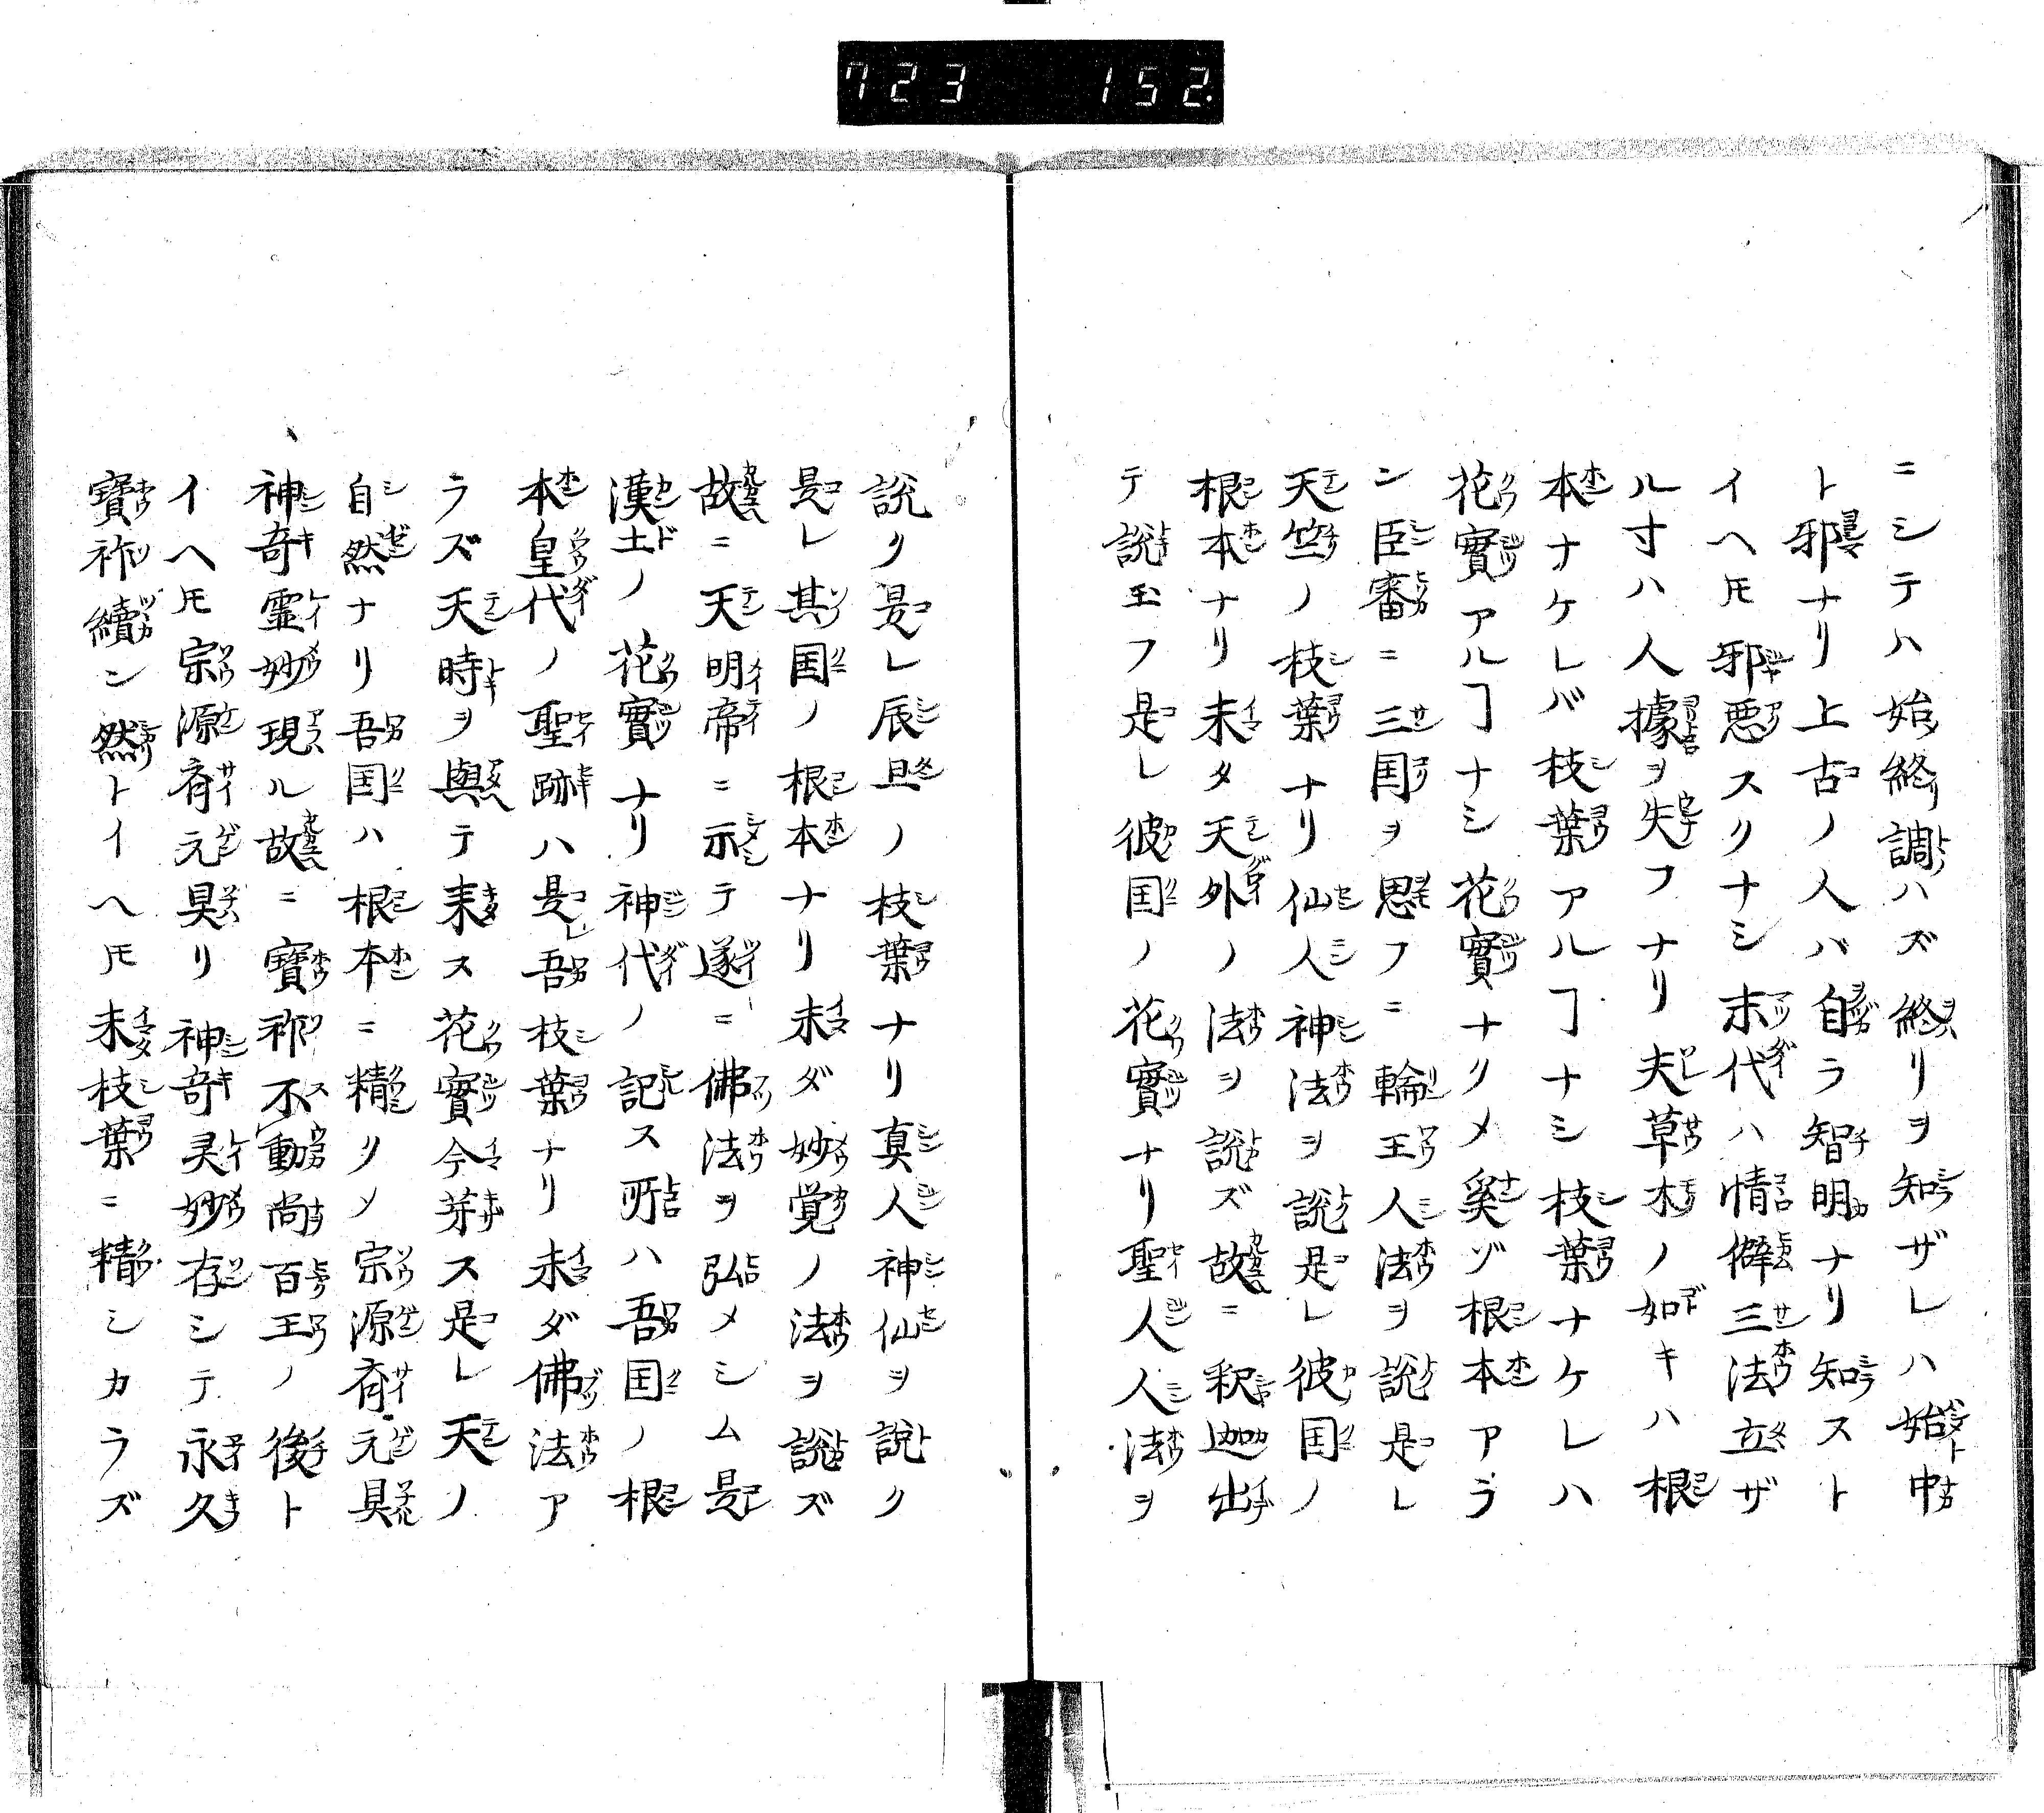 723 152
ニシテハ始終調ハズ終リヲ知ザレハ始中
ト邪ナリ上古ノ人バ自ラ智明ナリ知スト
イヘ𪜈邪悪スクナシ末代ハ情僻三法立ザ
ル寸ハ人據ヲ失フナリ夫草木ノ如キハ根
本ナケレバ枝葉アルヿナシ枝葉ナケレハ
花實アルヿナシ花實ナクメ奚ゾ根本アラ
ン臣審ニ三国ヲ思フニ輪王人法ヲ説是レ
天竺ノ枝葉ナリ仙人神法ヲ説是レ彼国ノ
根本ナリ未タ天外ノ法ヲ説ズ故ニ釈迦出
テ説玉フ是レ彼国ノ花實ナリ聖人人法ヲ
説ク是レ辰旦ノ枝葉ナリ真人神仙ヲ説ク
是レ其国ノ根本ナリ未ダ妙覚ノ法ヲ説ズ
故ニ天明帝ニ示テ遂ニ佛法ヲ弘メシム是
漢土ノ花實ナリ神代ノ記ス所ハ吾国ノ根
本皇代ノ聖跡ハ是レ吾枝葉ナリ未ダ佛法ア
ラズ天時ヲ與テ来ス花實今芽ス是レ天ノ
自然ナリ吾国ハ根本ニ精クメ宗源斉元具
神奇霊妙現ル故ニ寶祚不動尚百王ノ後ト
イヘ𪜈宗源斉元具リ神奇灵妙存シテ永久
寶祚續ン然トイヘ𪜈未枝葉ニ精シカラズ